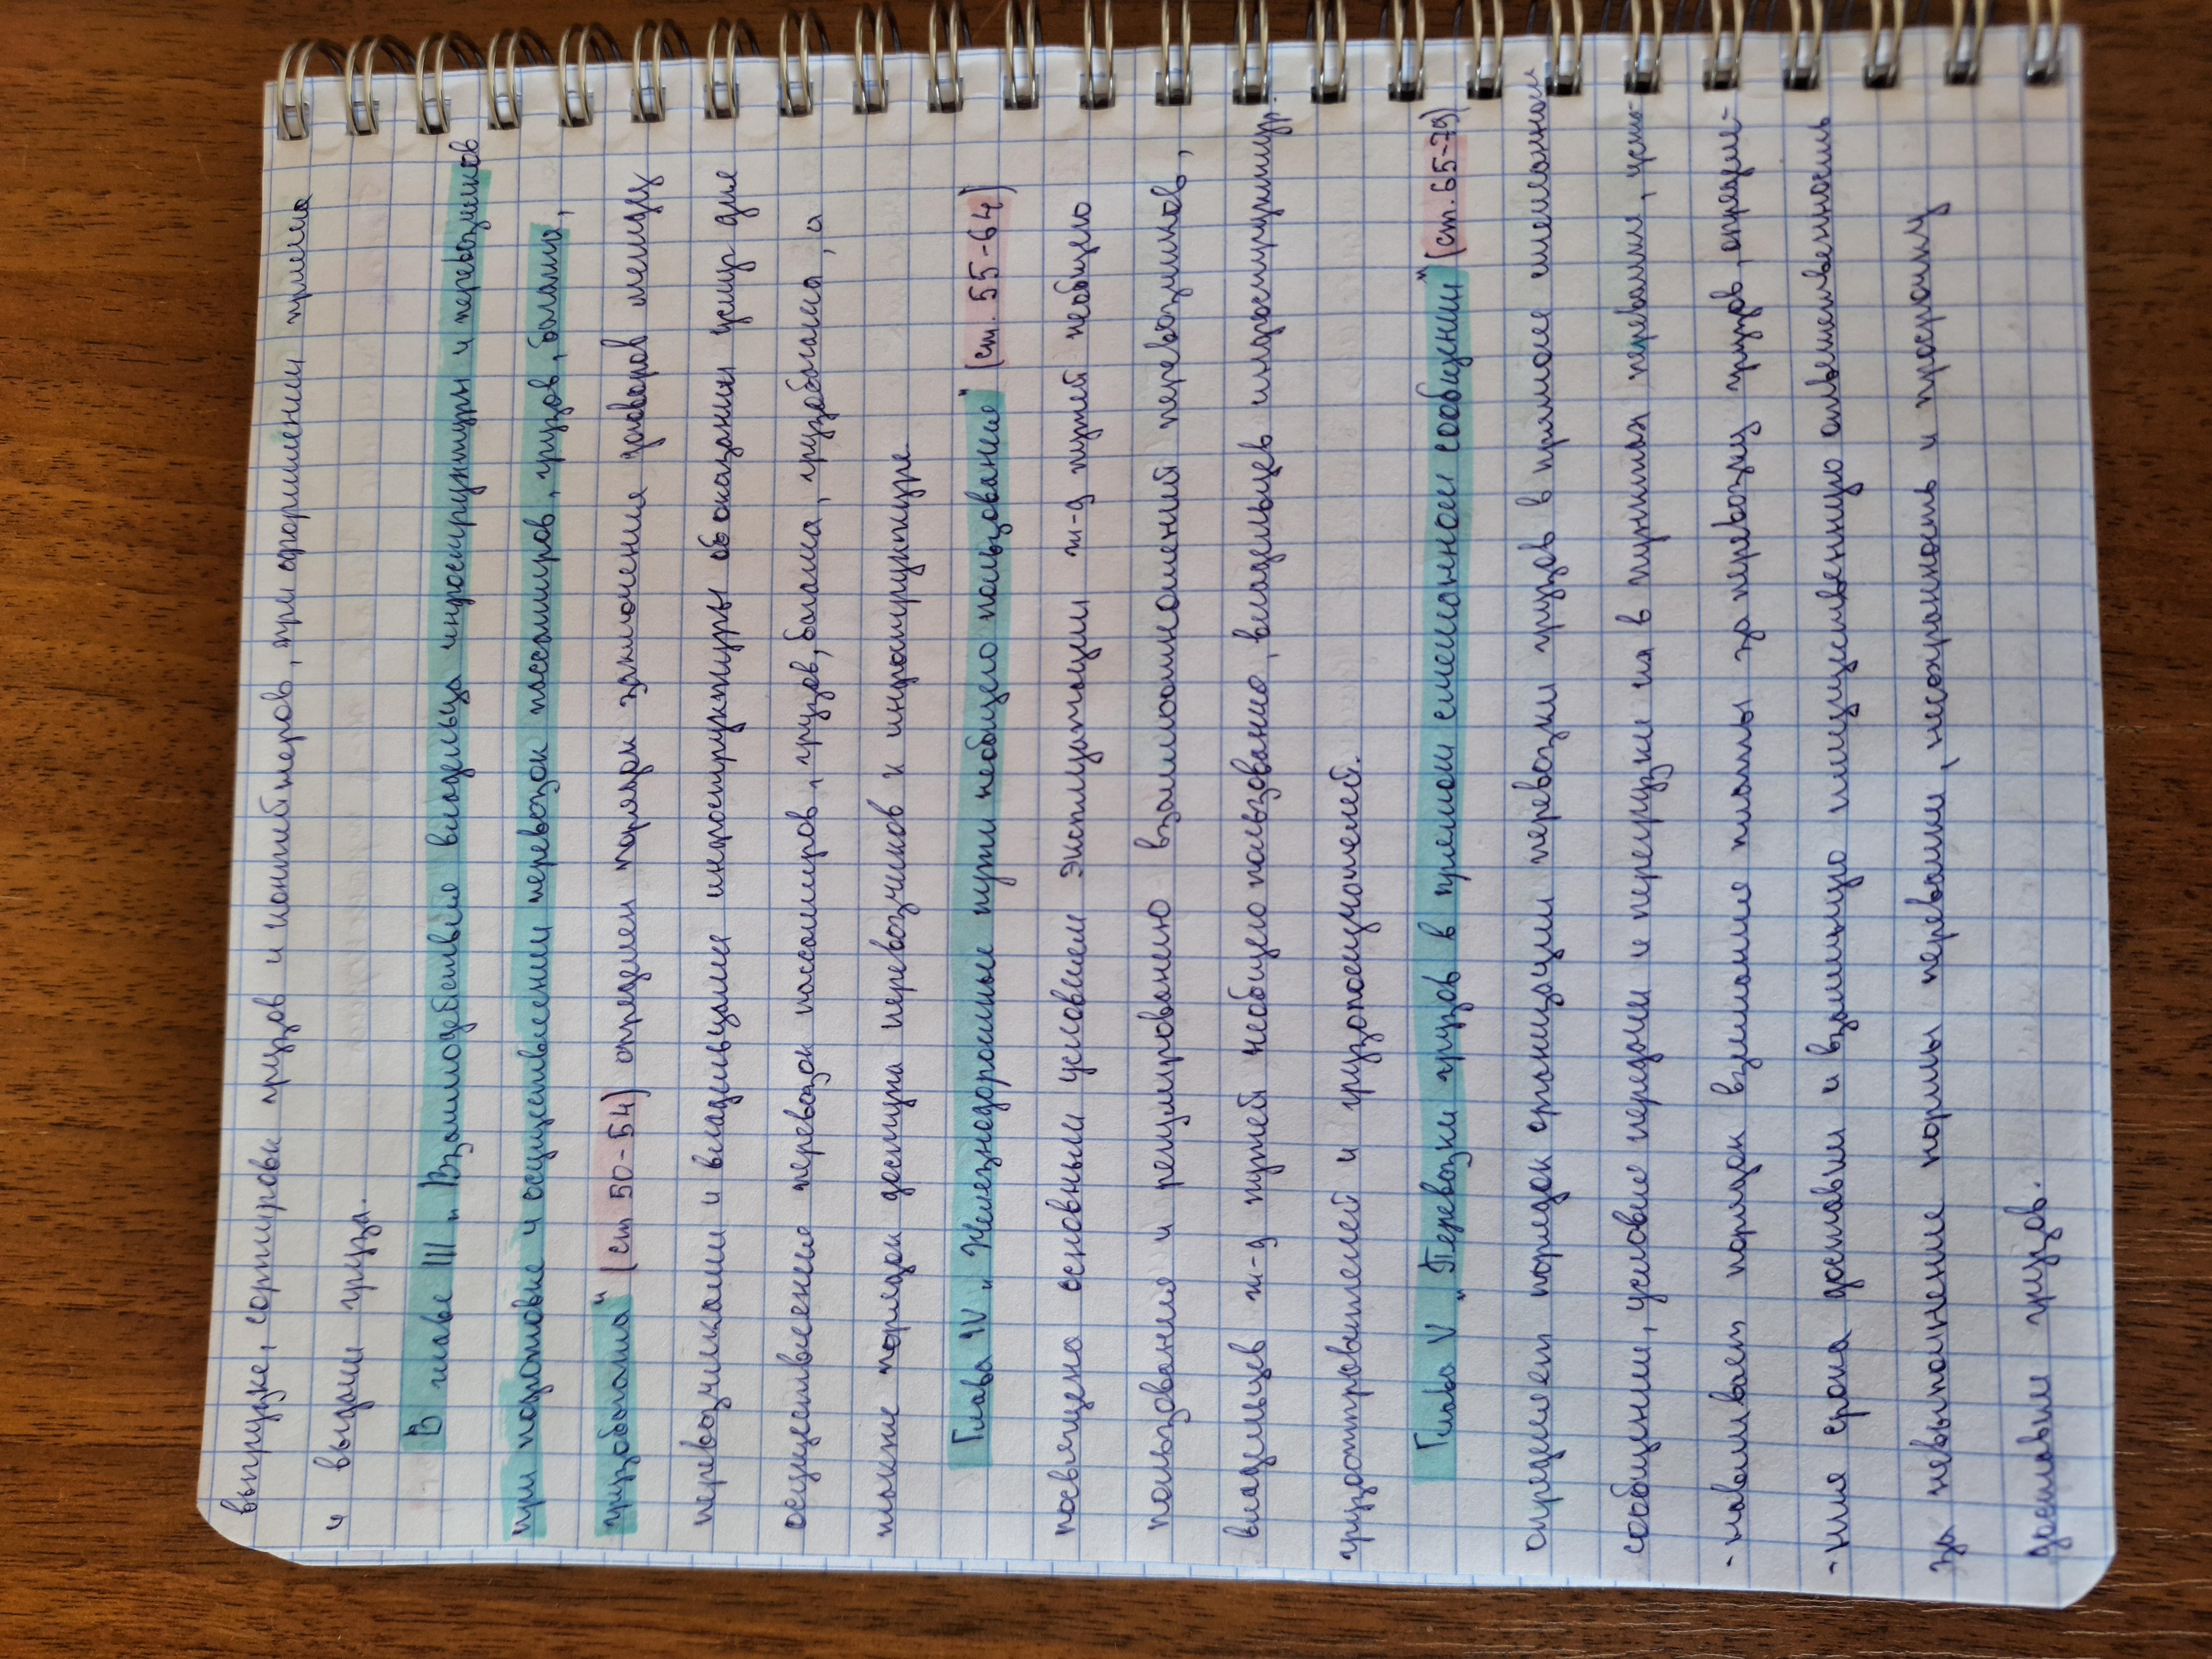 выгрузке, сортировки грузов и контейнеров, при оформлении приема
и выдачи груза.
В главе III „Взаимодействие владельца инфроструктуры и перевозчиков
при подготовке и осуществлении перевозок пассажиров, грузов, багажа,
грузобагажа" (ст 50-54) определен порядок заключения договоров между
перевозчиками и владельцами инфроструктуры об оказании услуг для
осуществления перевозок пассажиров, грузов, багажа, грузобагажа, а
также порядок доступа перевозчиков к инфраструктуре.
Глава IV „Железнодорожные пути необщего пользования" (ст. 55-64)
посвящена основным условием эксплуатации ж-д путей необщего
пользования и регулированию взаимоотношений перевозчиков,
владельцев ж-д путей необщего пользования, владельцев инфроструктур.
грузоотправителей и грузополучателей.
Глава V „Перевозки грузов в прямом смешанном сообщении" (ст. 65-79)
определяет порядок организации перевозки грузов в прямом смешанном
сообщении, условие передачи и перегрузки их в пунктах перевалки, уста-
-навливает порядок взимание платы за перевозку грузов, определе-
-ние срока доставки и взаимную имущественную ответственность
за невыполнение нормы перевалки, несохранность и просрочку
доставки грузов.